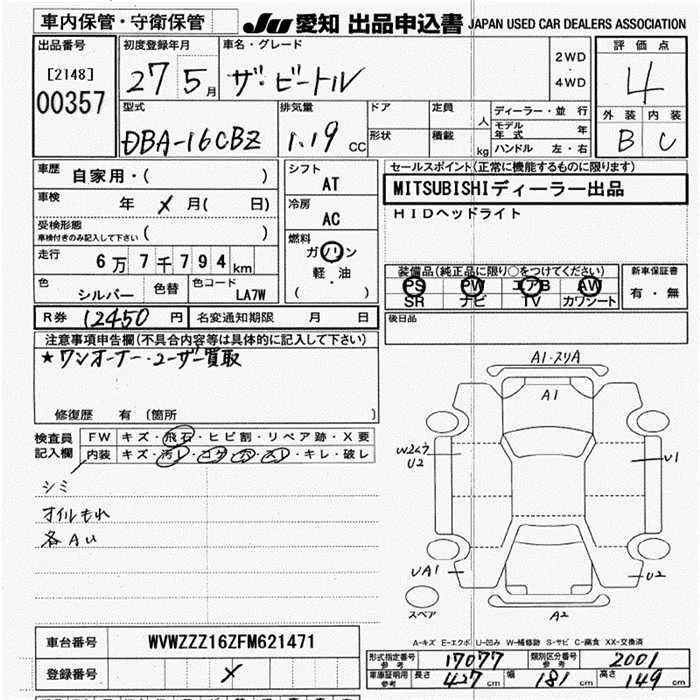 車内保管・守衛保管
JU 愛知 出品申込書 JAPAN USED CAR DEALERS ASSOCIATION
出品番号
[2148]
00357
初度登録年月
27 5月
車名・グレード
ザ・ビートル
2WD
・
4WD
評価点
4
外装 内装
B C
型式
DBA-16CBZ
排気量
1.19 CC
ドア
形状
定員
人
積載
kg
ディーラー・並行
モデル年式 年
ハンドル 左・右
車歴 自家用・( )
車検 年 X 月( 日)
受検形態
車検付きのみ記入して下さい ( )
走行 6万7千794km
色 シルバー 色替 色コード LA7W
シフト
AT
冷房
AC
燃料
ガソリン
軽・油
( )
セールスポイント(正常に機能するものに限ります)
MITSUBISHIディーラー出品
HIDヘッドライト
装備品(純正品に限り○をつけてください)
PS PW エアB AW
SR ナビ TV カワシート
新車保証書
有・無
R券 12450 円 名変通知期限 月 日
後日品
注意事項申告欄(不具合内容等は具体的に記入して下さい)
★ワンオーナー・ユーザー買取
修復歴 有 (箇所 )
検査員記入欄
FW キズ・飛石・ヒビ割・リペア跡・X要
内装 キズ・汚レ・コゲ・穴・スレ・キレ・破レ
シミ
オイルもれ
各AU
A1・スリA
A1
U2
U1
UA1
U2
A2
スペア
A-キズ E-エクボ U-凹み W-補修跡 S-サビ C-腐食 XX-交換済
車台番号 WVWZZZ16ZFM621471
登録番号 X
形式指定番号 参考 17077 類別区分番号 参考 2001
車庫証明用 参考 長さ 427 cm 幅 181 cm 高さ 149 cm